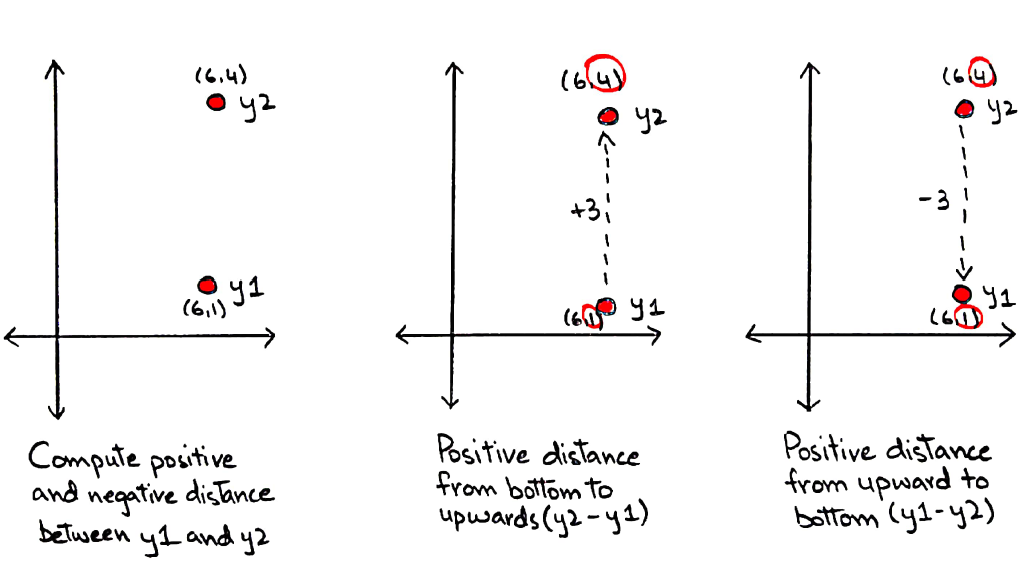 (6,4)
y2
y1
(6,1)
Compute positive
and negative distance
between y1 and y2
(6,4)
y2
+3
y1
(6,1)
Positive distance
from bottom to
upwards (y2-y1)
(6,4)
y2
-3
y1
(6,1)
Positive distance
from upward to
bottom (y1-y2)